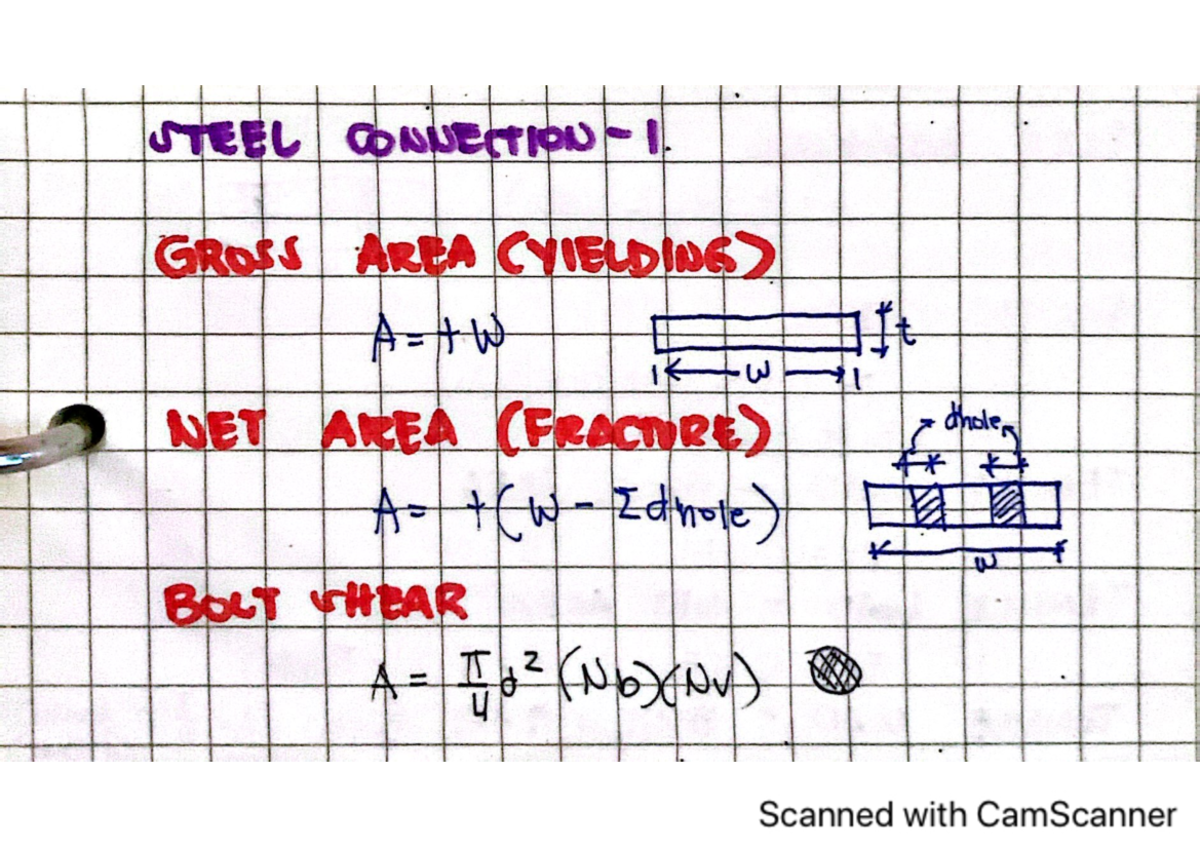 STEEL CONNECTION-1.
GROSS AREA (YIELDING)
A = t W
t
W
NET AREA (FRACTURE)
dhole
A = t(W - Σdhole)
W
BOLT SHEAR
A = π/4 d² (Nb)(Nv)
Scanned with CamScanner